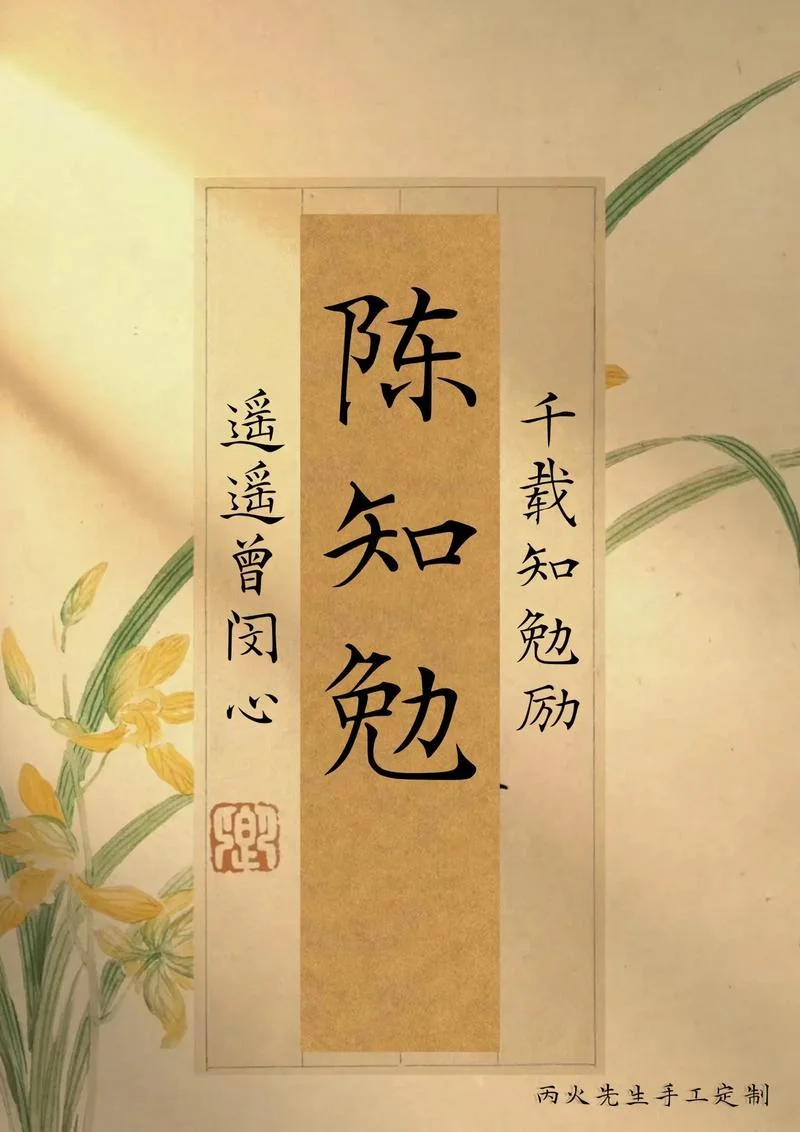 千载知勉励
陈知勉
遥遥曾闵心
丙火先生手工定制